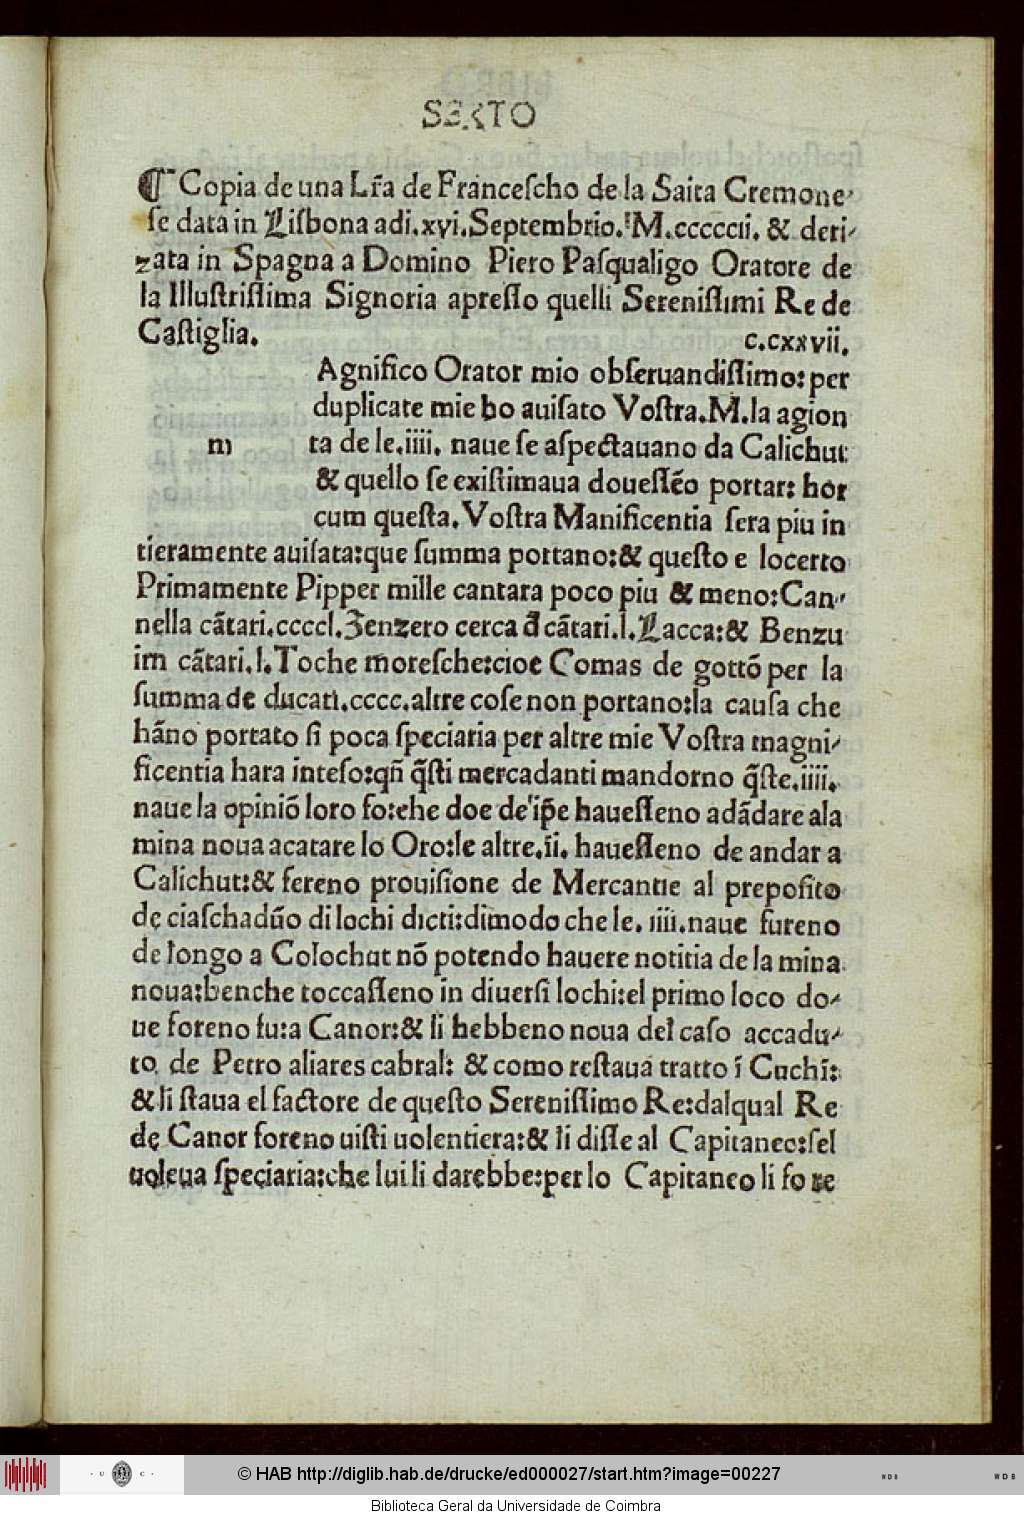 SEXTO
¶ Copia de una Lr̃a de Francescho de la Saita Cremone-
se data in Lisbona adi.xvi.Septembrio.M.cccccii. & deri-
zata in Spagna a Domino Piero Pasqualigo Oratore de
la Illustrissima Signoria apresso quelli Serenissimi Re de
Castiglia. c.cxxvii.
Agnifico Orator mio obseruandissimo: per
duplicate mie ho auisato Vostra.M.la agion
m ta de le.iiii. naue se aspectauano da Calichut:
& quello se existimaua douessẽo portar: hor
cum questa.Vostra Manificentia sera piu in
tieramente auisata:que summa portano:& questo e locerto
Primamente Pipper mille cantara poco piu & meno:Can-
nella cãtari.ccccl.Zenzero cerca đ cãtari.l.Lacca:& Benzu
im cãtari.l.Toche moresche:cioe Comas de gottõ per la
summa de ducati.cccc.altre cose non portano:la causa che
hãno portato si poca speciaria per altre mie Vostra magni-
ficentia hara inteso:qñ q̃sti mercadanti mandorno q̃ste.iiii.
naue la opiniõ loro fo:che doe de ip̃e hauesseno adãdare ala
mina noua acatare lo Oro:le altre.ii. hauesseno de andar a
Calichut:& fereno prouisione de Mercantie al preposito
de ciaschadũo di lochi dicti:dimodo che le. iiii.naue fureno
de longo a Colochut nõ potendo hauere notitia de la mina
noua:benche toccasseno in diuersi lochi:el primo loco do-
ue foreno fu:a Canor:& li hebbeno noua del caso accadu-
to de Petro aliares cabral: & como restaua tratto ĩ Cuchi:
& li staua el factore de questo Serenissimo Re:dalqual Re
de Canor foreno uisti uolentiera:& li disse al Capitaneo:sel
uoleua speciaria:che lui li darebbe:per lo Capitaneo li fo re
© HAB http://diglib.hab.de/drucke/ed000027/start.htm?image=00227
U C
WDB
WDB
Biblioteca Geral da Universidade de Coimbra